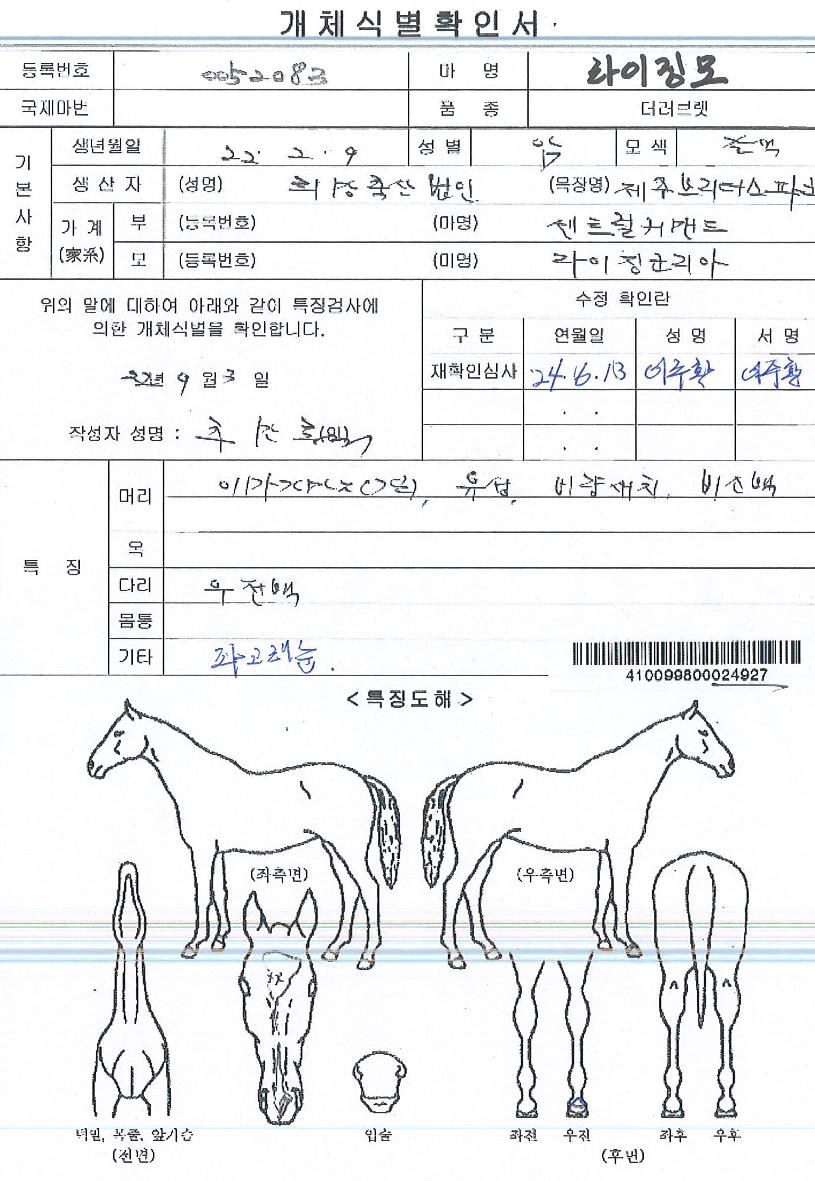 개체식별확인서
등록번호 0052083 마 명 라이징모
국제마번 품 종 더러브렛
기본사항
생년월일 22. 2. 9 성별 암 모색
생산자 (성명) 축산법인 (목장명) 제주브리더스파크
가계 (家系) 부 (등록번호) (마명) 센트럴커맨드
모 (등록번호) (마명) 라이징글리아
위의 말에 대하여 아래와 같이 특징검사에
의한 개체식별을 확인합니다.
22년 9월 3일
작성자 성명 :
수정 확인란
구분 연월일 성명 서명
재확인심사 24.6.13 이주환 이주환
. .
. .
특 징
머리 유성, 비량세치, 비소백
목
다리 우전백
몸통
기타 좌고래눈.
410099800024927
<특징도해>
(좌측면) (우측면)
턱밑, 목줄, 앞가슴 입술 좌전 우전 좌후 우후
(전면) (후면)